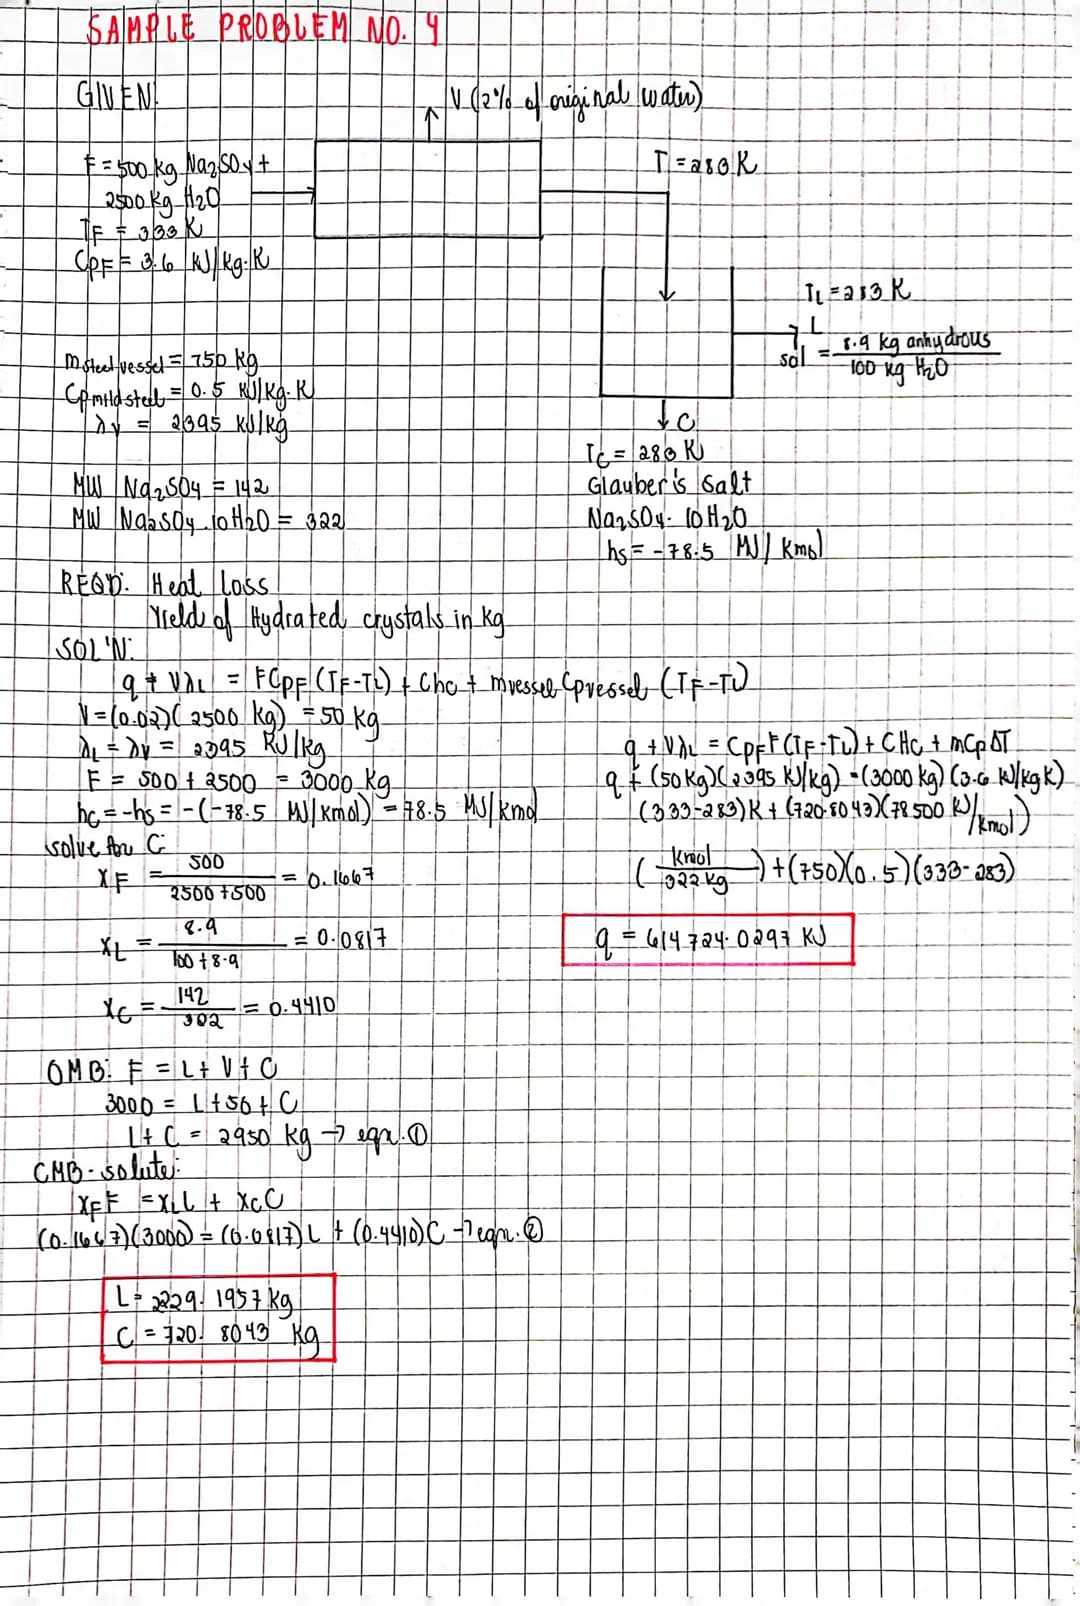 SAMPLE PROBLEM NO. 4
GIVEN:
V (2% of original water)
F = 500 kg Na2SO4 +
2500 kg H2O
TF = 333 K
CPF = 3.6 kJ/kg·K
T = 283 K
TL = 283 K
L
sol = 8.9 kg anhydrous / 100 kg H2O
msteel vessel = 750 kg
Cp mild steel = 0.5 kJ/kg·K
λv = 2395 kJ/kg
C
Tc = 283 K
Glauber's Salt
Na2SO4 · 10H2O
hs = -78.5 MJ/kmol
MW Na2SO4 = 142
MW Na2SO4·10H2O = 322
REQD: Heat loss
Yield of Hydrated crystals in kg
SOL'N:
q + VλL = FCPF (TF-TL) + Chc + mvessel Cpvessel (TF-TL)
V = (0.02)(2500 kg) = 50 kg
λL = λv = 2395 kJ/kg
F = 500 + 2500 = 3000 kg
hc = -hs = -(-78.5 MJ/kmol) = 78.5 MJ/kmol
solve for C:
XF = 500 / 2500 + 500 = 0.1667
XL = 8.9 / 100 + 8.9 = 0.0817
XC = 142 / 322 = 0.4410
OMB: F = L + V + C
3000 = L + 50 + C
L + C = 2950 kg → eqn. ①
CMB - solute:
XFF = XLL + XCC
(0.1667)(3000) = (0.0817)L + (0.4410)C → eqn. ②
L = 2229.1957 kg
C = 720.8043 kg
q + VλL = CPFF (TF-TL) + CHc + mCpΔT
q + (50 kg)(2395 kJ/kg) = (3000 kg)(3.6 kJ/kgK)
(333-283)K + (720.8043)(78 500 kJ/kmol)
(kmol / 322 kg) + (750)(0.5)(333-283)
q = 614 724.0297 kJ